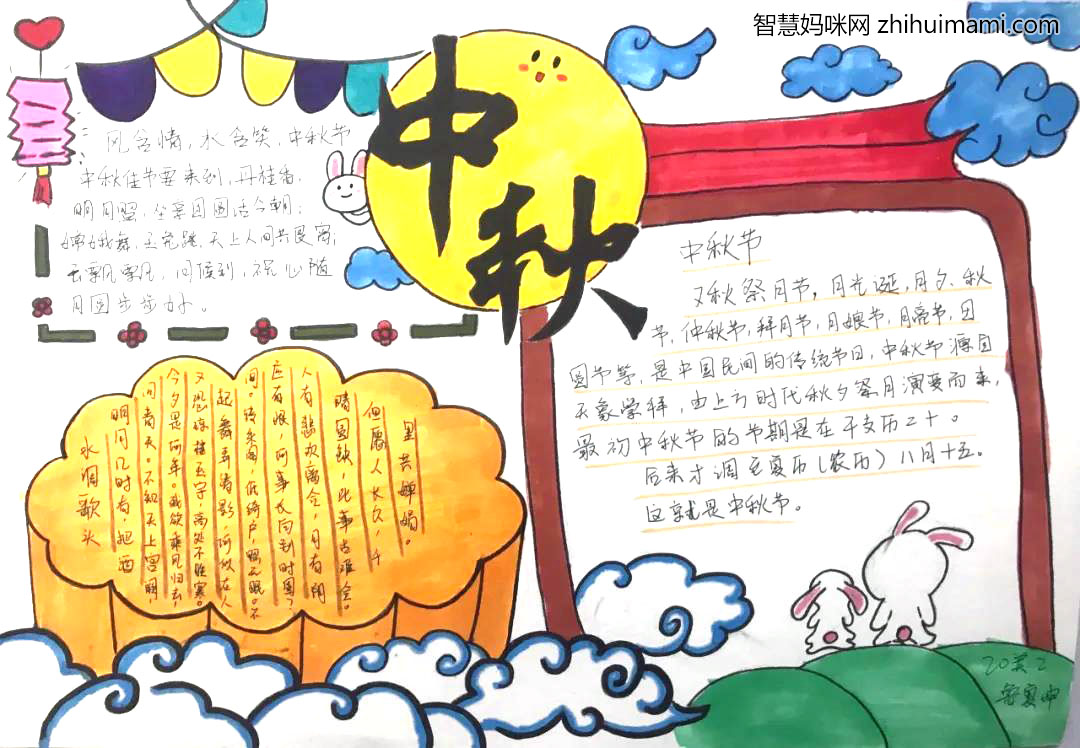 智慧妈咪网 zhihuimami.com
中秋
风含情,水含笑,中秋节
中秋佳节要来到,丹桂香,
明月照,坐亲团圆话今朝;
嫦娥舞,玉兔跳,天上人间共良宵;
云飘飘,风,问候到,祝心随
月圆步步好。
中秋节
又秋祭月节,月光诞,月夕、秋
节,仲秋节,拜月节,月娘节,月亮节,团
圆节等,是中国民间的传统节日,中秋节源自
天象崇拜,由上古时代秋夕祭月演变而来,
最初中秋节的节期是在干支历二十。
后来才调至夏历(农历)八月十五。
这就是中秋节。
水调歌头
明月几时有,把酒
问青天。不知天上宫阙,
今夕是何年。我欲乘风归去,
又恐琼楼玉宇,高处不胜寒。
起舞弄清影,何似在人
间。转朱阁,低绮户,照无眠。不
应有恨,何事长向别时圆?
人有悲欢离合,月有阴
晴圆缺,此事古难全。
但愿人长久,千
里共婵娟。
20美2